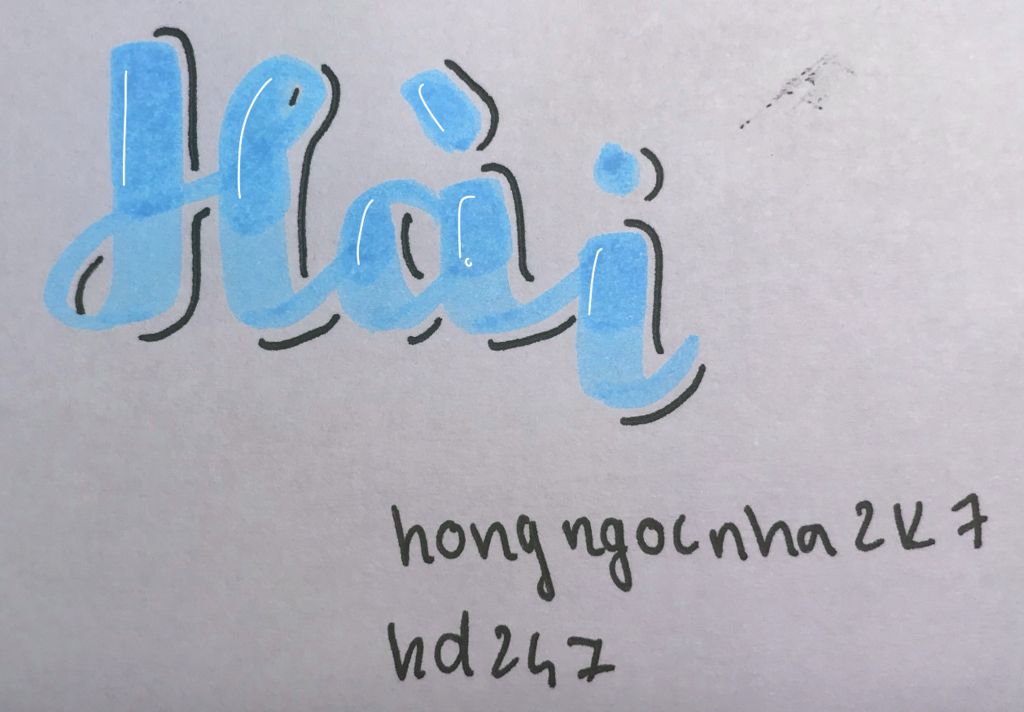 Hài
hongngocnha2k7
hd247